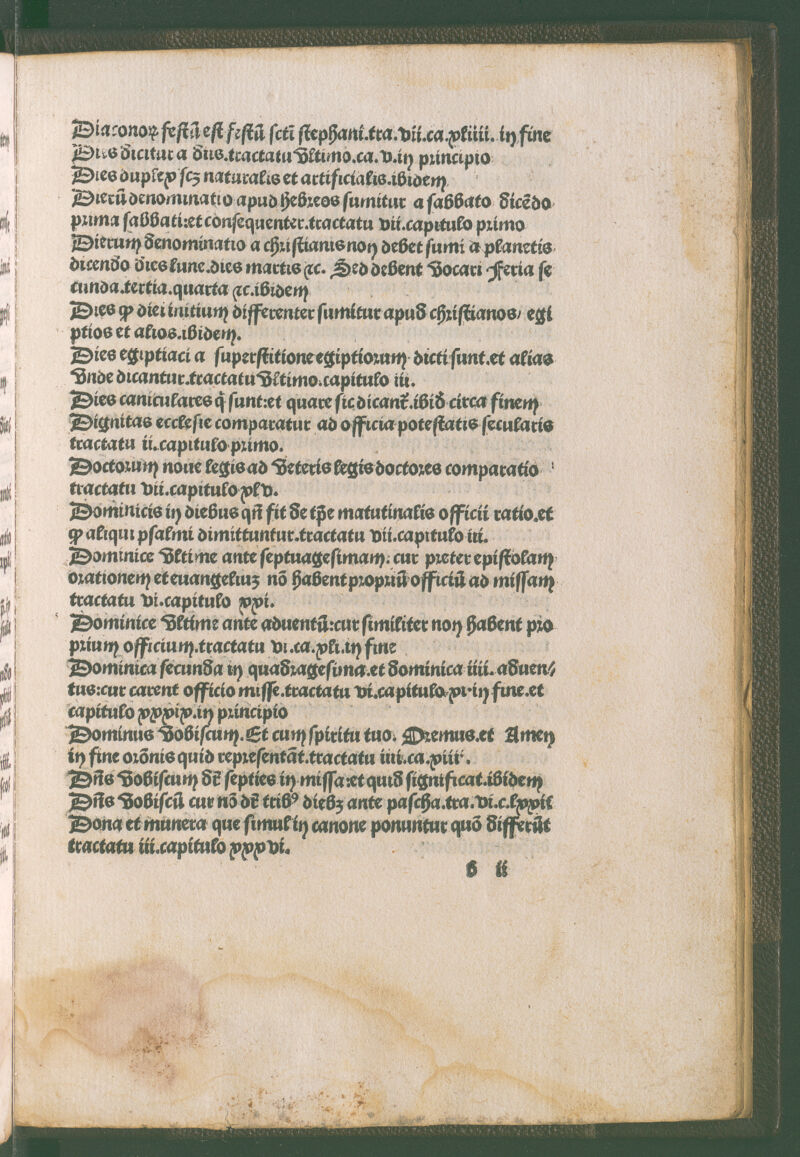 Diaconoꝝ festū est festū scti̅ stephani.tra.vii.ca.xliiii. in fine
Dies dicitur a dus.tractatu vltimo.ca.v.in principio
Dies duplex scꝫ naturalis et artificialis.ibidem
Dierū denominatio apud hebreos sumitur a sabbato dicēdo
prima sabbati:et consequenter.tractatu vii.capitulo primo
Dierum denominatio a christianis non debet sumi a planetis
dicendo dies lune.dies martis ⁊c. Sed debent vocari Feria se
cunda.tertia.quarta ⁊c.ibidem
Dies ꝙ diei initium differenter sumitur apud christianos/ egi
ptios et alios.ibidem.
Dies egiptiaci a superstitione egiptiorum dicti sunt.et alias
vnde dicantur.tractatu vltimo.capitulo iii.
Dies caniculares q̄ sunt:et quare sic dicant᷑.ibid̄ circa finem
Dignitas ecclesie comparatur ad officia potestatis secularis
tractatu ii.capitulo primo.
Doctorum noue legis ad veteris legis doctores comparatio
tractatu vii.capitulo xlv.
Dominicis in diebus qn̄ fit de tp̄e matutinalis officii ratio.et
ꝙ aliqui psalmi dimittuntur.tractatu vii.capitulo iii.
Dominice vltime ante septuagesimam: cur preter epistolam
orationem et euangeliuꝫ nō habent propriū officiū ad missam
tractatu vi.capitulo xxi.
Dominice vltime ante aduentū:cur similiter non habent pro
prium officium.tractatu vi.ca.xli.in fine
Dominica secunda in quadragesima.et dominica iiii. aduen/
tus:cur carent officio misse.tractatu vi.capitulo.xi.in fine.et
capitulo xxxix.in principio
Dominus vobiscum.Et cum spiritu tuo. Oremus.et Amen
in fine orōnis quid representāt.tractatu iiii.ca.xiii.
Dn̄s vobiscum dr̄ septies in missa:et quid significat.ibidem
Dn̄s vobiscū cur nō dr̄ tribꝰ diebꝫ ante pascha.tra.vi.c.lxxii
Dona et munera que simul in canone ponuntur quō differūt
tractatu iii.capitulo xxxvi.
b ii